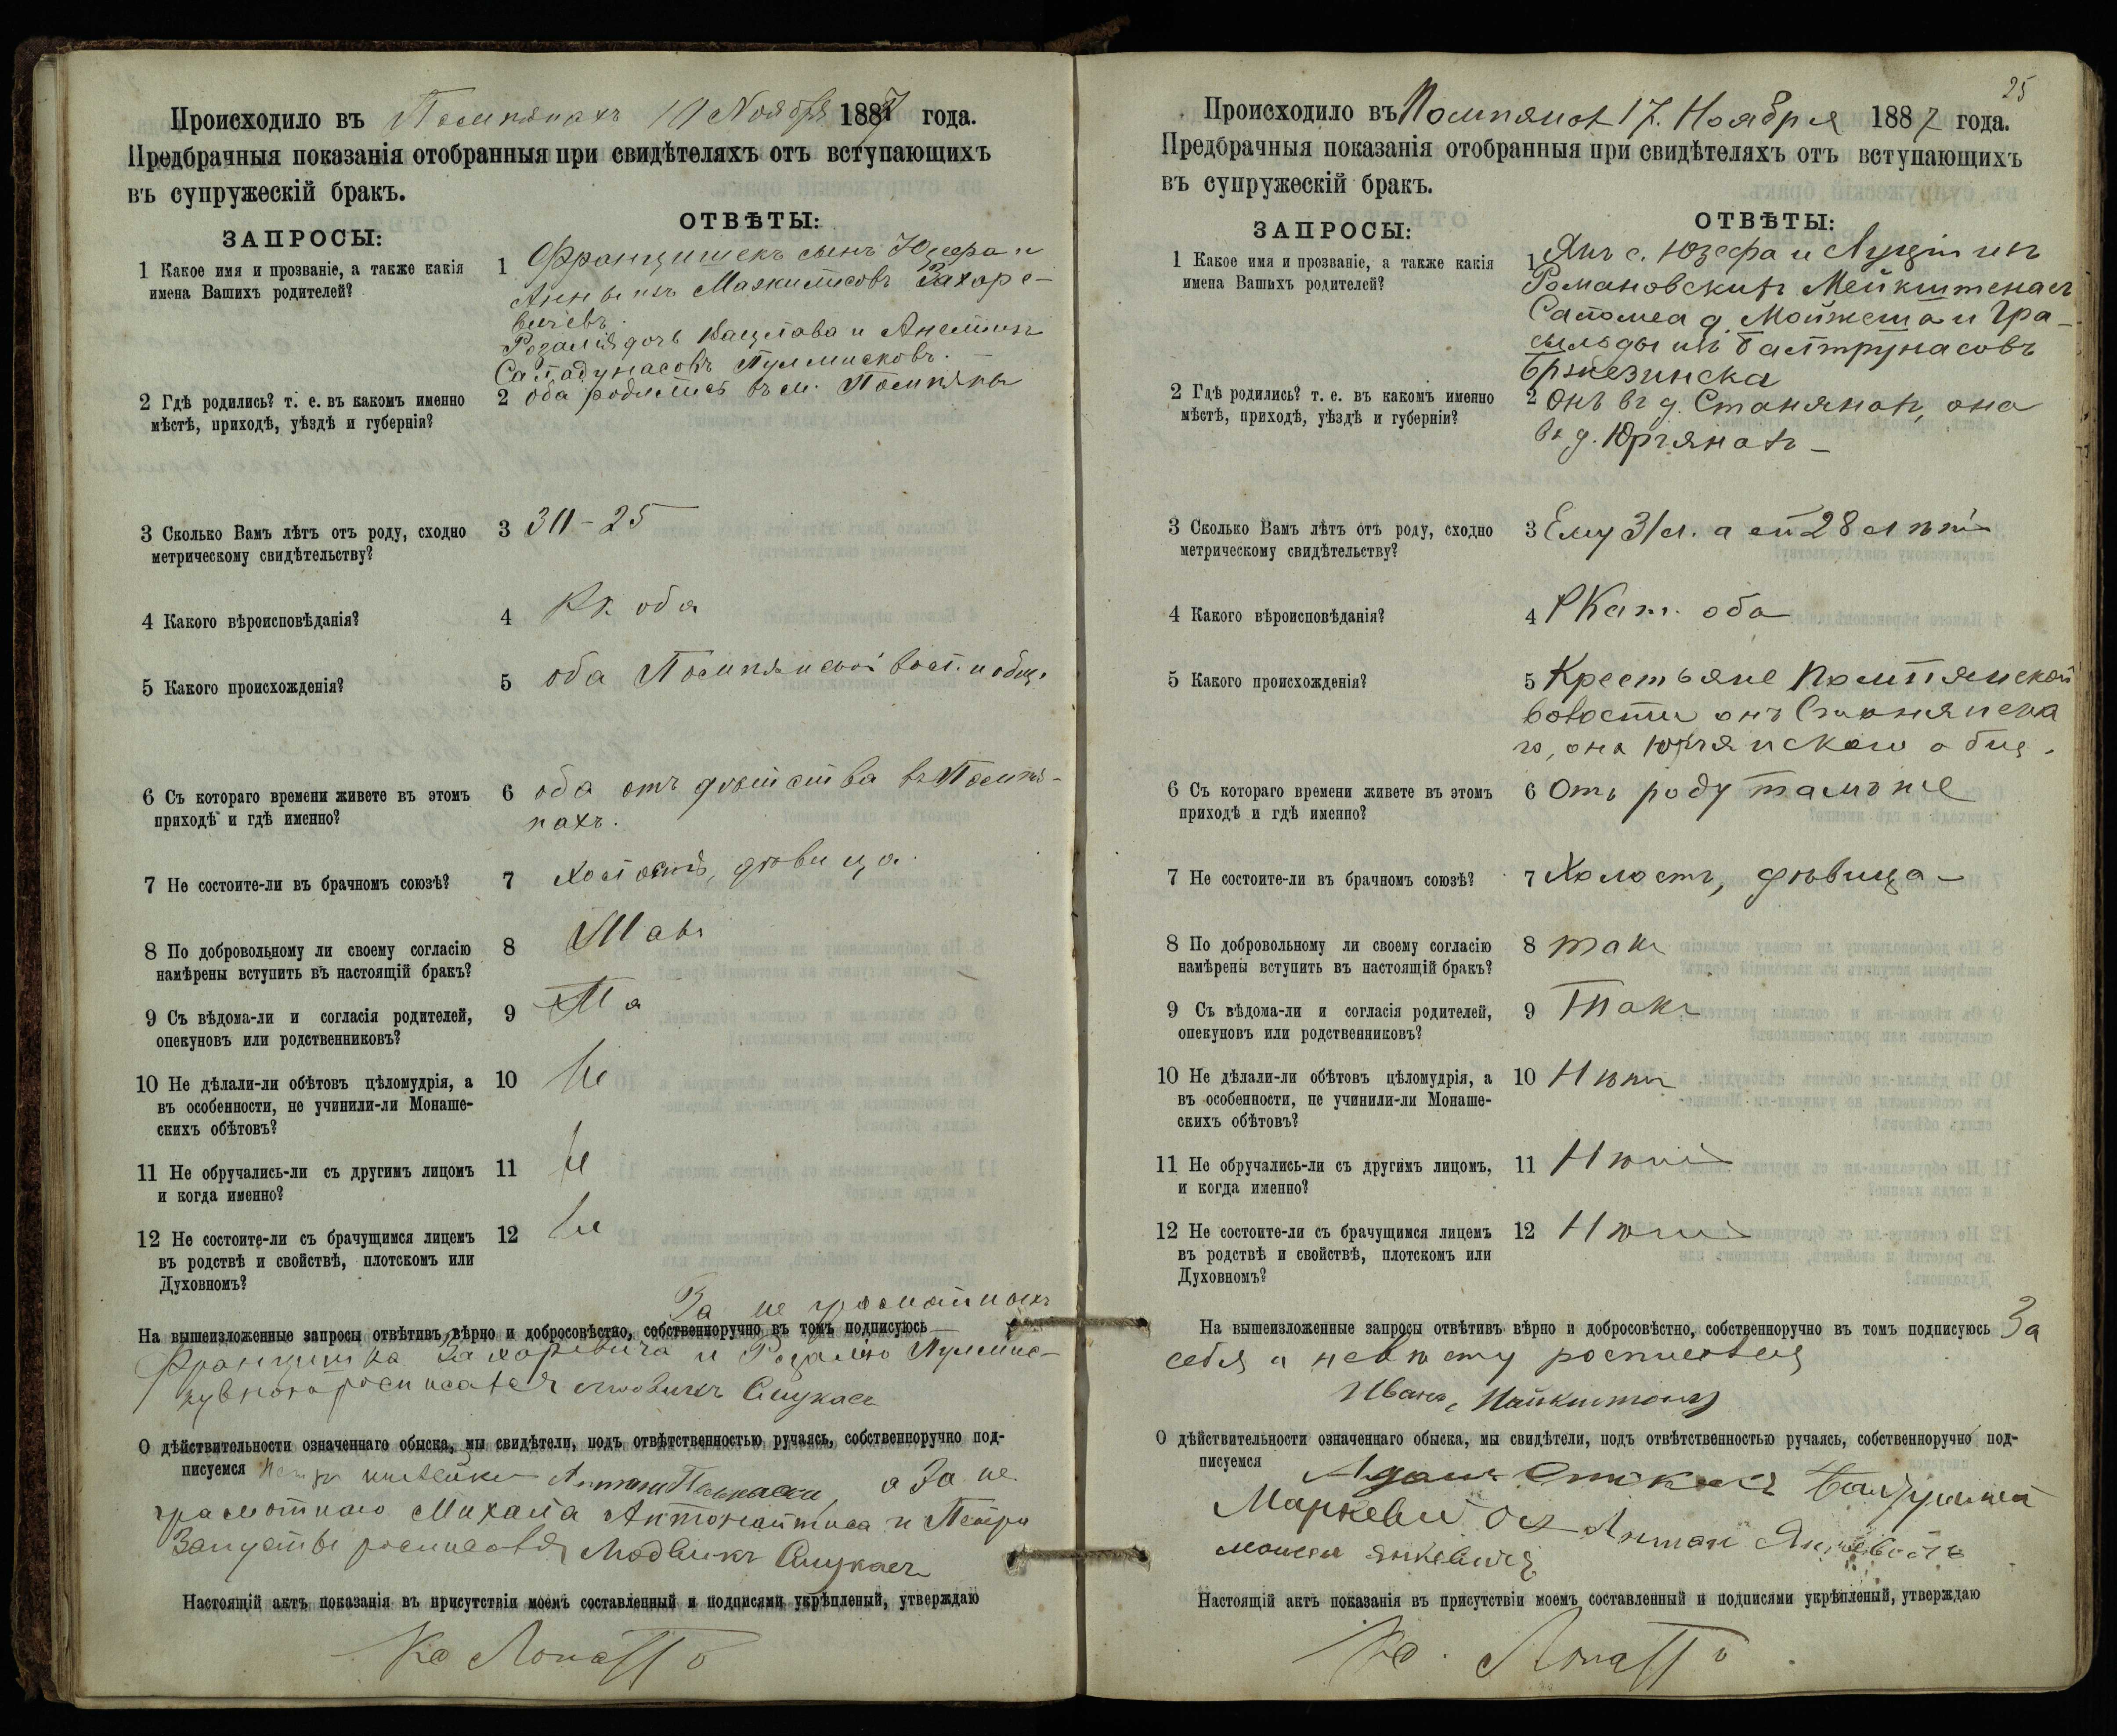 Происходило въ Помпянахъ 10 Ноября 1887 года.
Предбрачныя показанія отобранныя при свидѣтеляхъ отъ вступающихъ
въ супружескій бракъ.
ЗАПРОСЫ:
ОТВѢТЫ:
1 Какое имя и прозваніе, а также какія
имена Вашихъ родителей?
1 Францишекъ сынъ Юзефа и
Анны изъ Захаре-
вичевъ.
Розалія дочь Вацлава и
2 Гдѣ родились? т. е. въ какомъ именно
мѣстѣ, приходѣ, уѣздѣ и губерніи?
2 оба родились въ м. Помпяны
3 Сколько Вамъ лѣтъ отъ роду, сходно
метрическому свидѣтельству?
3 30 - 25
4 Какого вѣроисповѣданія?
4 Рк оба
5 Какого происхожденія?
5 оба Помпянской вол. и общ.
6 Съ котораго времени живете въ этомъ
приходѣ и гдѣ именно?
6 оба отъ дѣтства въ Помпя-
нахъ.
7 Не состоите-ли въ брачномъ союзѣ?
7 Холостъ, дѣвица.
8 По добровольному ли своему согласію
намѣрены вступить въ настоящій бракъ?
8 Такъ
9 Съ вѣдома-ли и согласія родителей,
опекуновъ или родственниковъ?
9 Та
10 Не дѣлали-ли обѣтовъ цѣломудрія, а
въ особенности, не учинили-ли Монаше-
скихъ обѣтовъ?
10 Не
11 Не обручались-ли съ другимъ лицомъ
и когда именно?
11 Не
12 Не состоите-ли съ брачущимся лицемъ
въ родствѣ и свойствѣ, плотскомъ или
Духовномъ?
12 Не
За не грамотныхъ
На вышеизложенные запросы отвѣтивъ вѣрно и добросовѣстно, собственноручно въ томъ подписуюсь
Францишка Захаревича и Розалію
росписался
О дѣйствительности означеннаго обыска, мы свидѣтели, подъ отвѣтственностью ручаясь, собственноручно под-
писуемся а За не
грамотнаго Михаила и Петра
росписался
Настоящій актъ показанія въ присутствіи моемъ составленный и подписями укрѣпленый, утверждаю
25
Происходило въ Помпянах 17. Ноября 1887 года.
Предбрачныя показанія отобранныя при свидѣтеляхъ отъ вступающихъ
въ супружескій бракъ.
ЗАПРОСЫ:
ОТВѢТЫ:
1 Какое имя и прозваніе, а также какія
имена Вашихъ родителей?
1 Янъ с. Юзефа и изъ
Романовскихъ
Саломея д. и Гра-
изъ Балтрунасовъ
Бржезинска
2 Гдѣ родились? т. е. въ какомъ именно
мѣстѣ, приходѣ, уѣздѣ и губерніи?
2 Онъ въ д. Станянахъ, она
въ д. Юргянахъ
3 Сколько Вамъ лѣтъ отъ роду, сходно
метрическому свидѣтельству?
3 Ему 31 л. а ей 28 лѣтъ
4 Какого вѣроисповѣданія?
4 РКат. оба
5 Какого происхожденія?
5 Крестьяне Помпянской
волости онъ Станянска
го, она Юргянскаго общ.
6 Съ котораго времени живете въ этомъ
приходѣ и гдѣ именно?
6 Отъ роду тамъ же
7 Не состоите-ли въ брачномъ союзѣ?
7 Холостъ, дѣвица
8 По добровольному ли своему согласію
намѣрены вступить въ настоящій бракъ?
8 такъ
9 Съ вѣдома-ли и согласія родителей,
опекуновъ или родственниковъ?
9 Такъ
10 Не дѣлали-ли обѣтовъ цѣломудрія, а
въ особенности, не учинили-ли Монаше-
скихъ обѣтовъ?
10 Нѣтъ
11 Не обручались-ли съ другимъ лицомъ,
и когда именно?
11 Нѣтъ
12 Не состоите-ли съ брачущимся лицемъ
въ родствѣ и свойствѣ, плотскомъ или
Духовномъ?
12 Нѣтъ
На вышеизложенные запросы отвѣтивъ вѣрно и добросовѣстно, собственноручно въ томъ подписуюсь За
себя и невѣсту росписался
Иванъ
О дѣйствительности означеннаго обыска, мы свидѣтели, подъ отвѣтственностью ручаясь, собственноручно под-
писуемся
Настоящій актъ показанія въ присутствіи моемъ составленный и подписями укрѣпленый, утверждаю